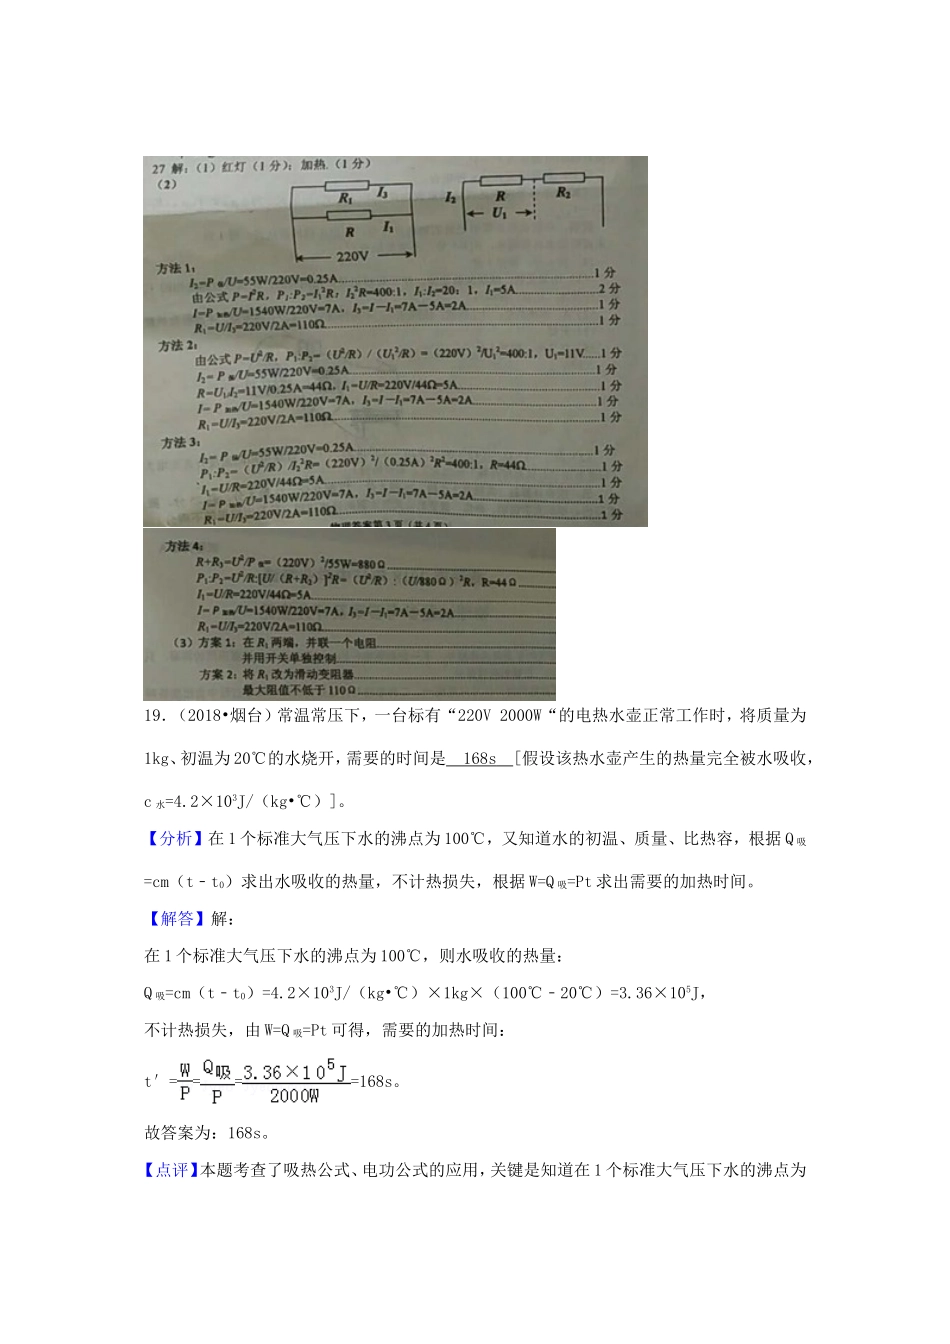 27 解:(1)红灯(1分);加热.(1分)
(2)
R₁ I₃
R I₁
220V
I₂ R R₂
U₁
方法1:
I₂=P保/U=55W/220V=0.25A 1分
由公式 P=I²R, P₁:P₂=I₁²R:I₂²R=400:1, I₁:I₂=20:1, I₁=5A 2分
I=P加热/U=1540W/220V=7A, I₃=I-I₁=7A-5A=2A 1分
R₁=U/I₃=220V/2A=110Ω 1分
方法2:
由公式 P=U²/R, P₁:P₂=(U²/R)/(U₁²/R)=(220V)²/U₁²=400:1, U₁=11V 1分
I₂=P保/U=55W/220V=0.25A 1分
R=U₁/I₂=11V/0.25A=44Ω, I₁=U/R=220V/44Ω=5A 1分
I=P加热/U=1540W/220V=7A, I₃=I-I₁=7A-5A=2A 1分
R₁=U/I₃=220V/2A=110Ω 1分
方法3:
I₂=P保/U=55W/220V=0.25A 1分
P₁:P₂=(U²/R)/I₂²R=(220V)²/(0.25A)²R²=400:1, R=44Ω 1分
I₁=U/R=220V/44Ω=5A 1分
I=P加热/U=1540W/220V=7A, I₃=I-I₁=7A-5A=2A 1分
R₁=U/I₃=220V/2A=110Ω 1分
物理答案第3页(共4页)
方法4:
R+R₃=U²/P保=(220V)²/55W=880Ω
P₁:P₂=U²/R:[U/(R+R₂)]²R=(U²/R):(U/880Ω)²R, R=44Ω
I₁=U/R=220V/44Ω=5A
I=P加热/U=1540W/220V=7A, I₃=I-I₁=7A-5A=2A
R₁=U/I₃=220V/2A=110Ω
(3)方案1:在R₁两端,并联一个电阻
并用开关单独控制
方案2:将R₁改为滑动变阻器
最大阻值不低于110Ω
19.(2018•烟台)常温常压下,一台标有“220V 2000W“的电热水壶正常工作时,将质量为
1kg、初温为20℃的水烧开,需要的时间是 168s [假设该热水壶产生的热量完全被水吸收,
c水=4.2×10³J/(kg•℃)]。
【分析】在1个标准大气压下水的沸点为100℃,又知道水的初温、质量、比热容,根据Q吸
=cm(t﹣t₀)求出水吸收的热量,不计热损失,根据W=Q吸=Pt求出需要的加热时间。
【解答】解:
在1个标准大气压下水的沸点为100℃,则水吸收的热量:
Q吸=cm(t﹣t₀)=4.2×10³J/(kg•℃)×1kg×(100℃﹣20℃)=3.36×10⁵J,
不计热损失,由W=Q吸=Pt可得,需要的加热时间:
t′=W/P=Q吸/P=3.36×10⁵J/2000W=168s。
故答案为:168s。
【点评】本题考查了吸热公式、电功公式的应用,关键是知道在1个标准大气压下水的沸点为